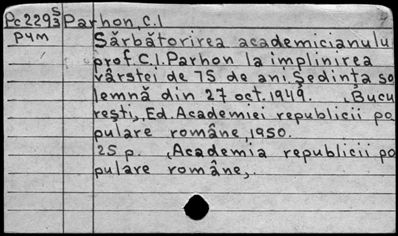 Pc 2293 S Parhon, C.I
Рум Sărbătorirea academicianulu
prof. C.I. Parhon la implinirea
vârstei de 75 de ani. Ședința so
lemnă din 27 oct. 1949. Bucu
rești, Ed. Academiei republicii po
pulare române, 1950.
25 p. (Academia republicii po
pulare române).